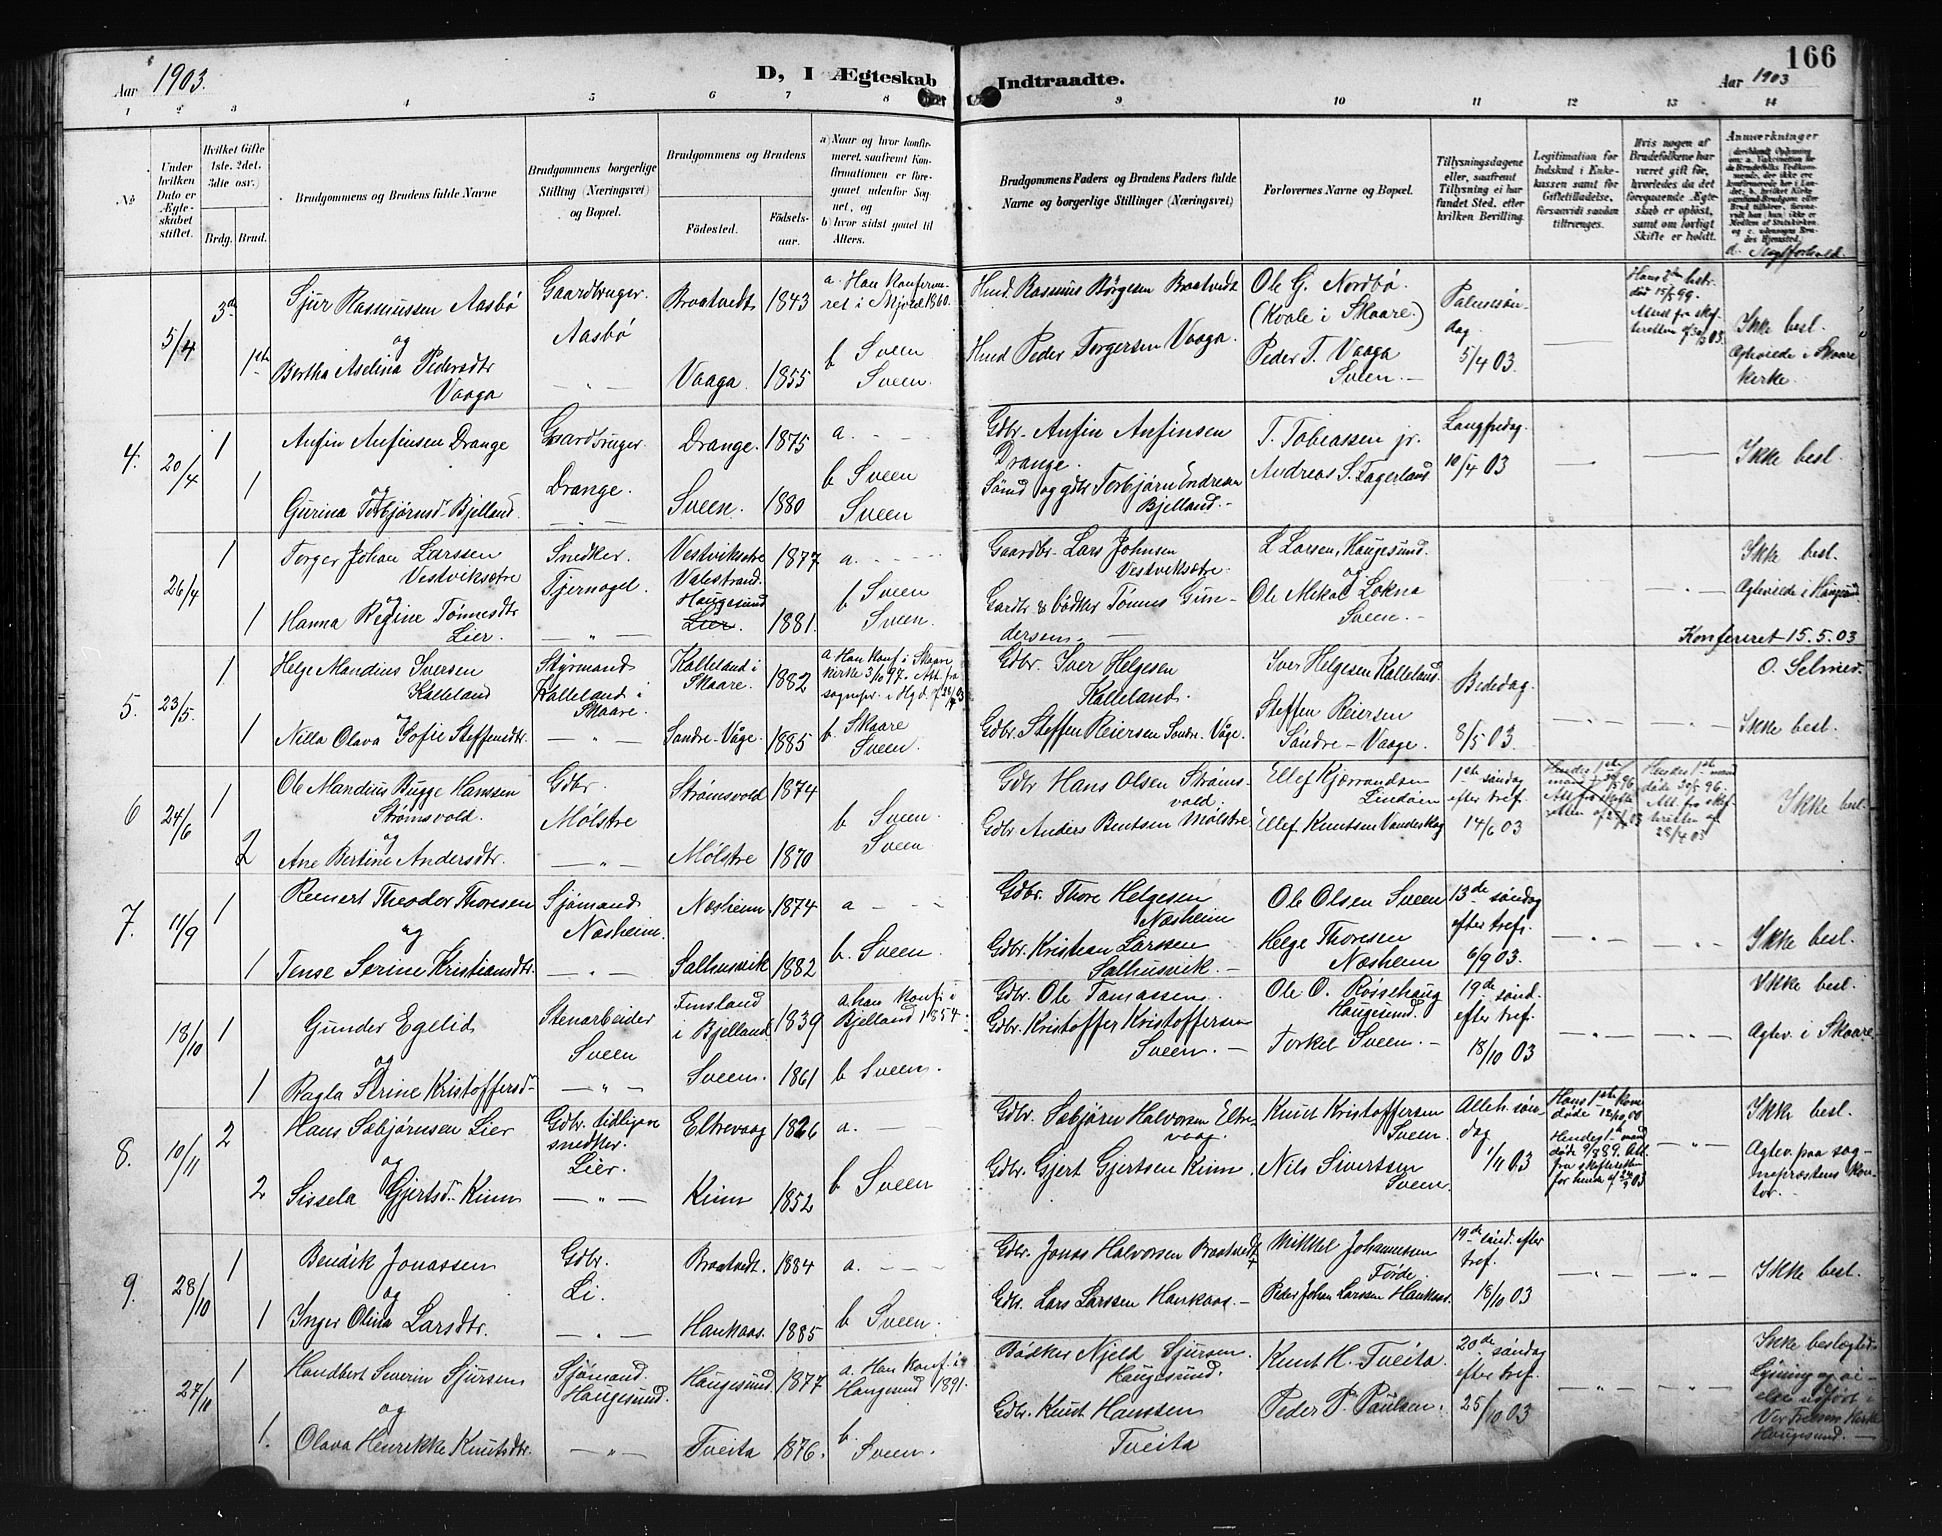 Aar 1903.
D, I Ægteskab Indtraadte.
Aar 1903
166
1 2 3 4 5 6 7 8 9 10 11 12 13 14
No
Under hvilken Dato er Ægteskabet stiftet.
Hvilket Gifte 1ste. 2det. 3die osv.
Brdg. Brud.
Brudgommens og Brudens fulde Navne
Brudgommens borgerlige Stilling (Næringsvei) og Bopæl.
Brudgommens og Brudens
Fødested.
Fødselsaar.
a) Naar og hvor konfirmeret, saafremt Konfirmationen er foregaaet udenfor Sognet, og
b) hvor sidst gaaet til Alters.
Brudgommens Faders og Brudens Faders fulde Navne og borgerlige Stillinger (Næringsvei)
Forlovernes Navne og Bopæl.
Tillysningsdagene eller, saafremt Tillysning ei har fundet Sted, efter hvilken Bevilling.
Legitimation for Indskud i Enkekassen samt for Giftetilladelse, forsaavidt saadan tiltrænges.
Hvis nogen af Brudefolkene har været gift før, hvorledes da det foregaaende Ægteskab er opløst, samt om lovligt Skifte er holdt.
Anmærkninger
5/4
3die
1ste
Sjur Rasmussen Aasbø
og
Bertha Aselina Pedersdtr
Vaaga
Gaardbruger.
Aasbø
— " —
Braatvedt 1843
Vaaga. 1855
a. Han konfirmeret i Skjold 1860.
b Sveen
Sveen.
Hmd. Rasmus Børgesen Braatvedt
Hmd Peder Torgersen Vaaga.
Ole G. Nordbø
(Kvale i Skaare.)
Peder T. Vaaga
Sveen. —
Palmesøndag
5/4 03.
død 15/5 99.
Ikke besl.
Agtviede i Skaare
Kirke.
4.
20/4
1
1
Anfin Anfinsen Drange
og
Gurina Torbjørnsd. Bjelland.
Gaardbruger.
Drange.
— " —
Drange. 1875
Sveen. 1880
a. - - -
b Sveen
Sveen
Gdbr. Anfin Anfinsen
Drange.
Smed og gdbr Torbjørn Endresen
Bjelland. -
T. Tobiassen jr.
Andreas S. Fagerland
Langfredag.
10/4 03
Ikke besl.
26/4
1
1
Torger Johan Larssen
Vestviksætre
og
Hanna Regine Tønnesdtr
Lier.
Snedker.
Tjernagel.
— " —
Vestviksætre
Valestrand. 1877
Haugesund
Lier. 1881.
a. - - - -
b Sveen
Sveen.
Gaardbr. Lars Johnsen
Vestviksætre.
Gardbr & bødker Tønnes Gundersen. —
L Larsen, Haugesund.
og
Ole Mekal Løkna
Sveen. -
Ikke besl.
Agtviede i Haugesund
Konfereret 15.5.03
O. Selmer.
5.
23/5.
1
1
Helge Mandius Iversen
Kalleland
Nilla Olava Sofie Steffensdtr.
Styrmand
Kalleland i
Skaare.
— " —
Kalleland i
Skaare. 1882
Søndre-Våge. 1885
a Han konf i Skaare
kirke 3/10 97. Att. fra
b. Skaare
Sveen.
Gdbr. Iver Helgesen
Kalleland.
Gdbr. Steffen Reiersen Søndre-Våge.
Iver Helgesen Kalleland
Steffen Reiersen
Søndre-Vaage.
Bededag.
8/5 03.
Ikke besl.
6
24/6
1
2
Ole Mandius Bugge Hanssen
Strømsvold.
og
Ane Bertine Andersdtr.
Gdbr.
Mølstre
— " —
Strømsvold 1874
Mølstre 1870
b Sveen.
Sveen.
Gdbr Hans Olsen Strømsvold.
Gdbr Anders Bentsen Mølstre
Ellef Kjærrandsen
Lindøen
Ellef Knutsen Vandeskog
1ste søndag
efter tref.
14/6 03
Hendes 1ste mand
døde 30/5 96.
Att. fra skifteretten af
28/4 03
Ikke besl.
7.
11/9
1
1
Reinert Theodor Thoresen
og
Tense Serine Kristiansdtr.
Sjømand
Næsheim.
— " —
Næsheim 1874
Salhusvik 1882
a - - -
b. Sveen.
Gdbr. Thore Helgesen
Næsheim
Gdbr. Kristian Larssen
Salhusvik. -
Ole Olsen Sveen
Helge Thoresen
Næsheim
13de søndag
efter tref.
6/9 03.
Ikke besl.
18/10
1
1
Gunder Egelid
og
Ragla Serine Kristoffersd.
Stenarbeider
Sveen
— " —
Finsland
i Bjelland 1839
Sveen. 1861
a. han konf i
Bjelland 1854.
b Sveen.
Gdbr. Ole Tomassen.
Gdbr. Kristoffer Kristoffersen
Sveen. —
Ole O. Røssehaug
Haugesund.
Torkel Sveen. -
19de sønd.
efter tref.
18/10 03
Ikke besl.
Agtev. i Skaare
8.
10/11
2
2
Hans Sebjørnsen Lier
og
Sissela Gjertsd. Kinn
Gdbr. tidligere
snedker.
Lier.
— " —
Eltrevaag 1826
Kinn 1852
a. - —
b Sveen
Gdbr. Sebjørn Halvorsen Eltrevaag.
Gdbr. Gjert Gjertsen Kinn.
Knut Kristoffersen
Sveen.
Nils Sivertsen
Sveen.
Alleh. søndag
1/11 03
Hans 1ste kone
døde 12/10 00
Hendes 1ste mand
døde 9/8 89. Att.
fra skifteretten
Ikke besl.
Agtev. paa sognepræstens kontor.
9.
28/10
1
1
Bendik Jonassen
og
Inger Olina Larsdtr.
Gdbr.
Li.
— " —
Braatvedt. 1884
Haukaas. 1885
a. - - -
b Sveen.
Gdbr. Jonas Halvorsen Braatvedt
Gdbr. Lars Larssen Haukaas. -
Mikkel Johannesen
Førde
Peder Johan Larssen Haukaas.
19de sønd. efter
tref.
18/10 03
Ikke besl.
27/10
1
1.
Handbert Severin Sjursen
og
Olava Henrikke Knutsdtr.
Sjømand.
Haugesund.
— " —
Haugesund. 1877
Tveita 1876.
a. Han konf. i
Haugesund 1891.
b.
Sveen.
Bødker Njeld Sjursen.
Haugesund.
Gdbr. Knut Hanssen
Tveita
Knut H. Tveita.
Peder P. Paulsen.
20de søndag
efter tref.
25/10 03
Ikke beslegted.
Lysning og vielse udført i
Vor Frelsers Kirke
Haugesund. —